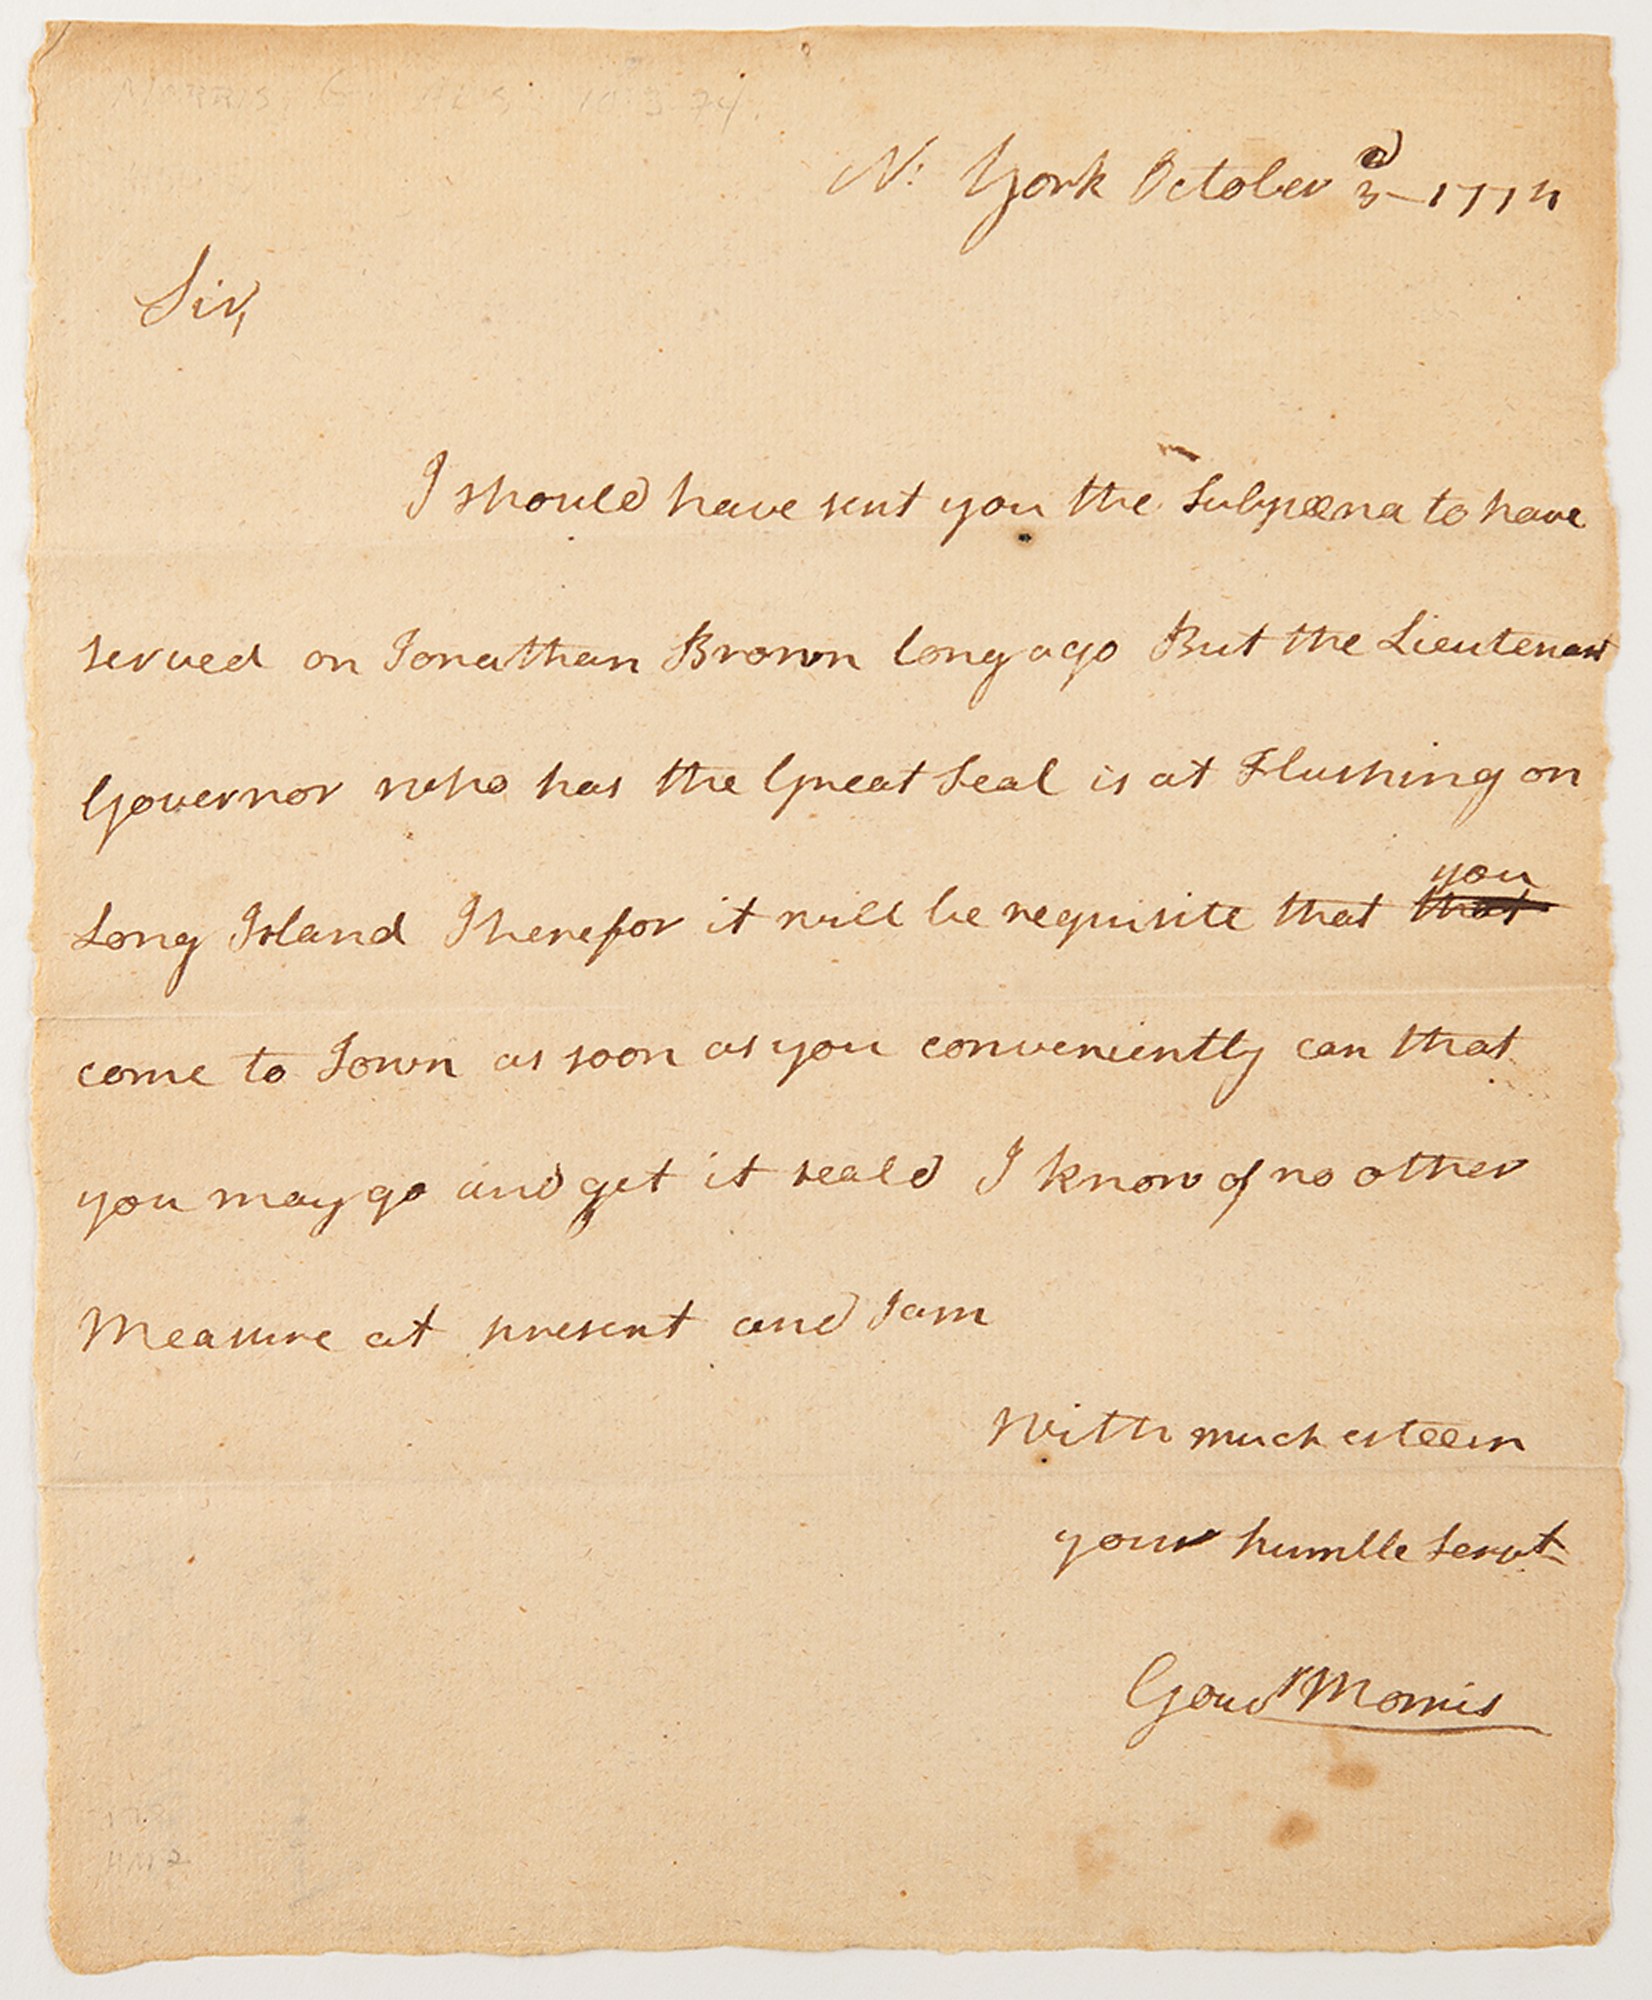 MORRIS, G. ALS 10-3-74.
N: York October 3d 1774
Sir,
I should have sent you the Subpœna to have
served on Jonathan Brown long ago But the Lieutenant
Governor who has the Great Seal is at Flushing on
you
Long Island Therefor it will be requisite that that
come to Town as soon as you conveniently can that
you may go and get it seald I know of no other
Measure at present and I am
With much esteem
your humble Servt
Gouvr Morris